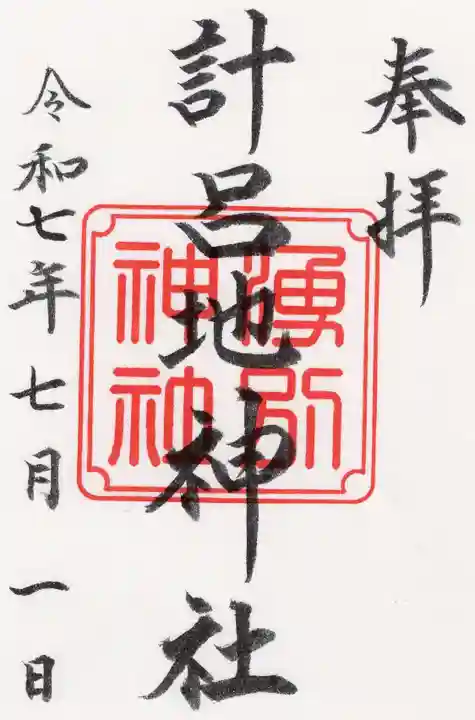 奉拝
計呂地神社
令和七年七月一日
湧別
神社